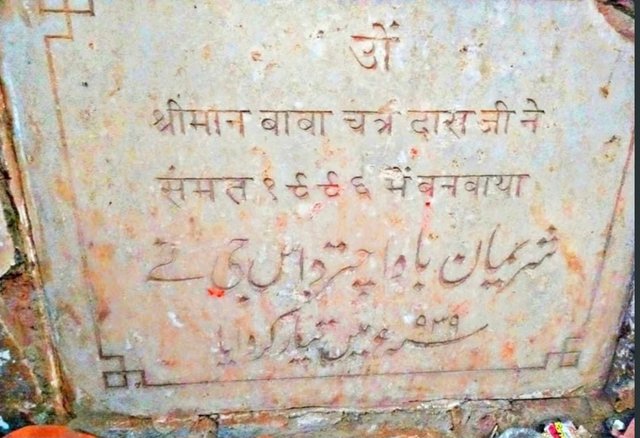 ओं
श्रीमान बाबा चत्र दास जी ने
संमत १९९६ में बनवाया
شریمان باوا چتر داس جی نے
سنہ ۱۹۳۹ء میں تیار کروایا